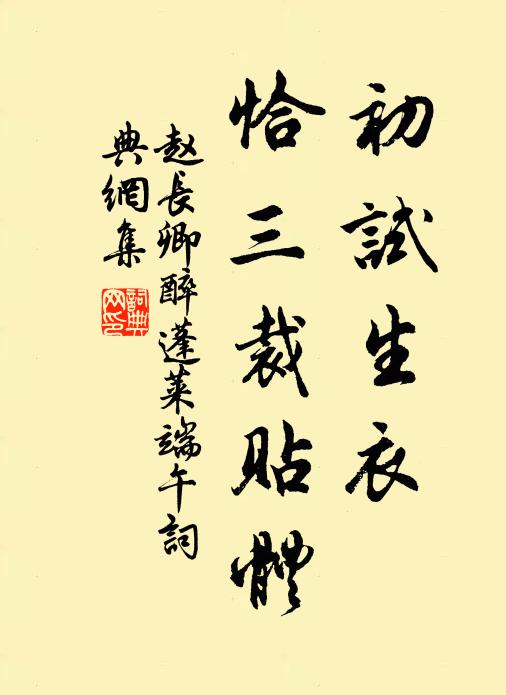 初試生衣
恰三裁貼體
赵長卿醉蓬萊端午詞
典網集
詞典
网印